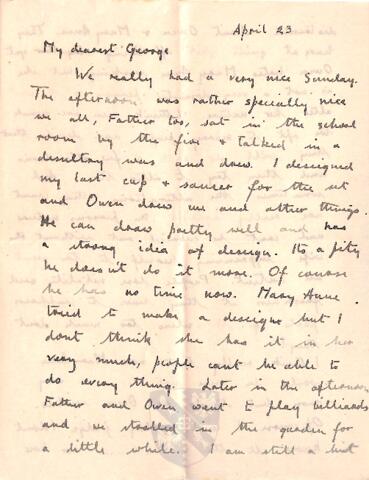 April 23
My dearest George
We really had a very nice Sunday.
The afternoon was rather specially nice
we all, Father too, sat in the school
room by the fire & talked in a
desultory was and drew. I desigred
my last cup & saucer for the set
and Owen drew me and other things.
He can draw pretty well and has
a strong idea of design. Its a pity
he doesn't do it more. Of course
he has no time now. Mary Anne
tried to make a desigue but I
dont think she has it in her
very much, people cant be able to
do every thing. Later in the afternoon
Father and Owen went to play billiards
and we strolled in the garden for
a little while. I am still a bit